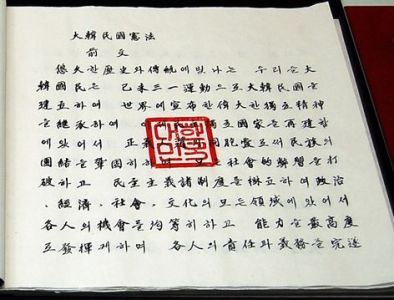 大韓民國憲法
前文
悠久한 歷史와 傳統에 빛나는 우리들 大
韓國民은 己未三一運動으로 大韓民國을
建立하여 世界에 宣布한 偉大한 獨立精神
을 繼承하여 獨立國家를 再建함
에 있어서 正義 同胞愛로써 民族의
團結을 鞏固히 하며 社會的 弊習을 打
破하고 民主主義諸制度를 樹立하여 政治
、經濟、社會、文化의 모든 領域에 있어서
各人의 機會를 均等히 하고 能力을 最高度
로 發揮케 하며 各人의 責任과 義務를 完遂
대한민국